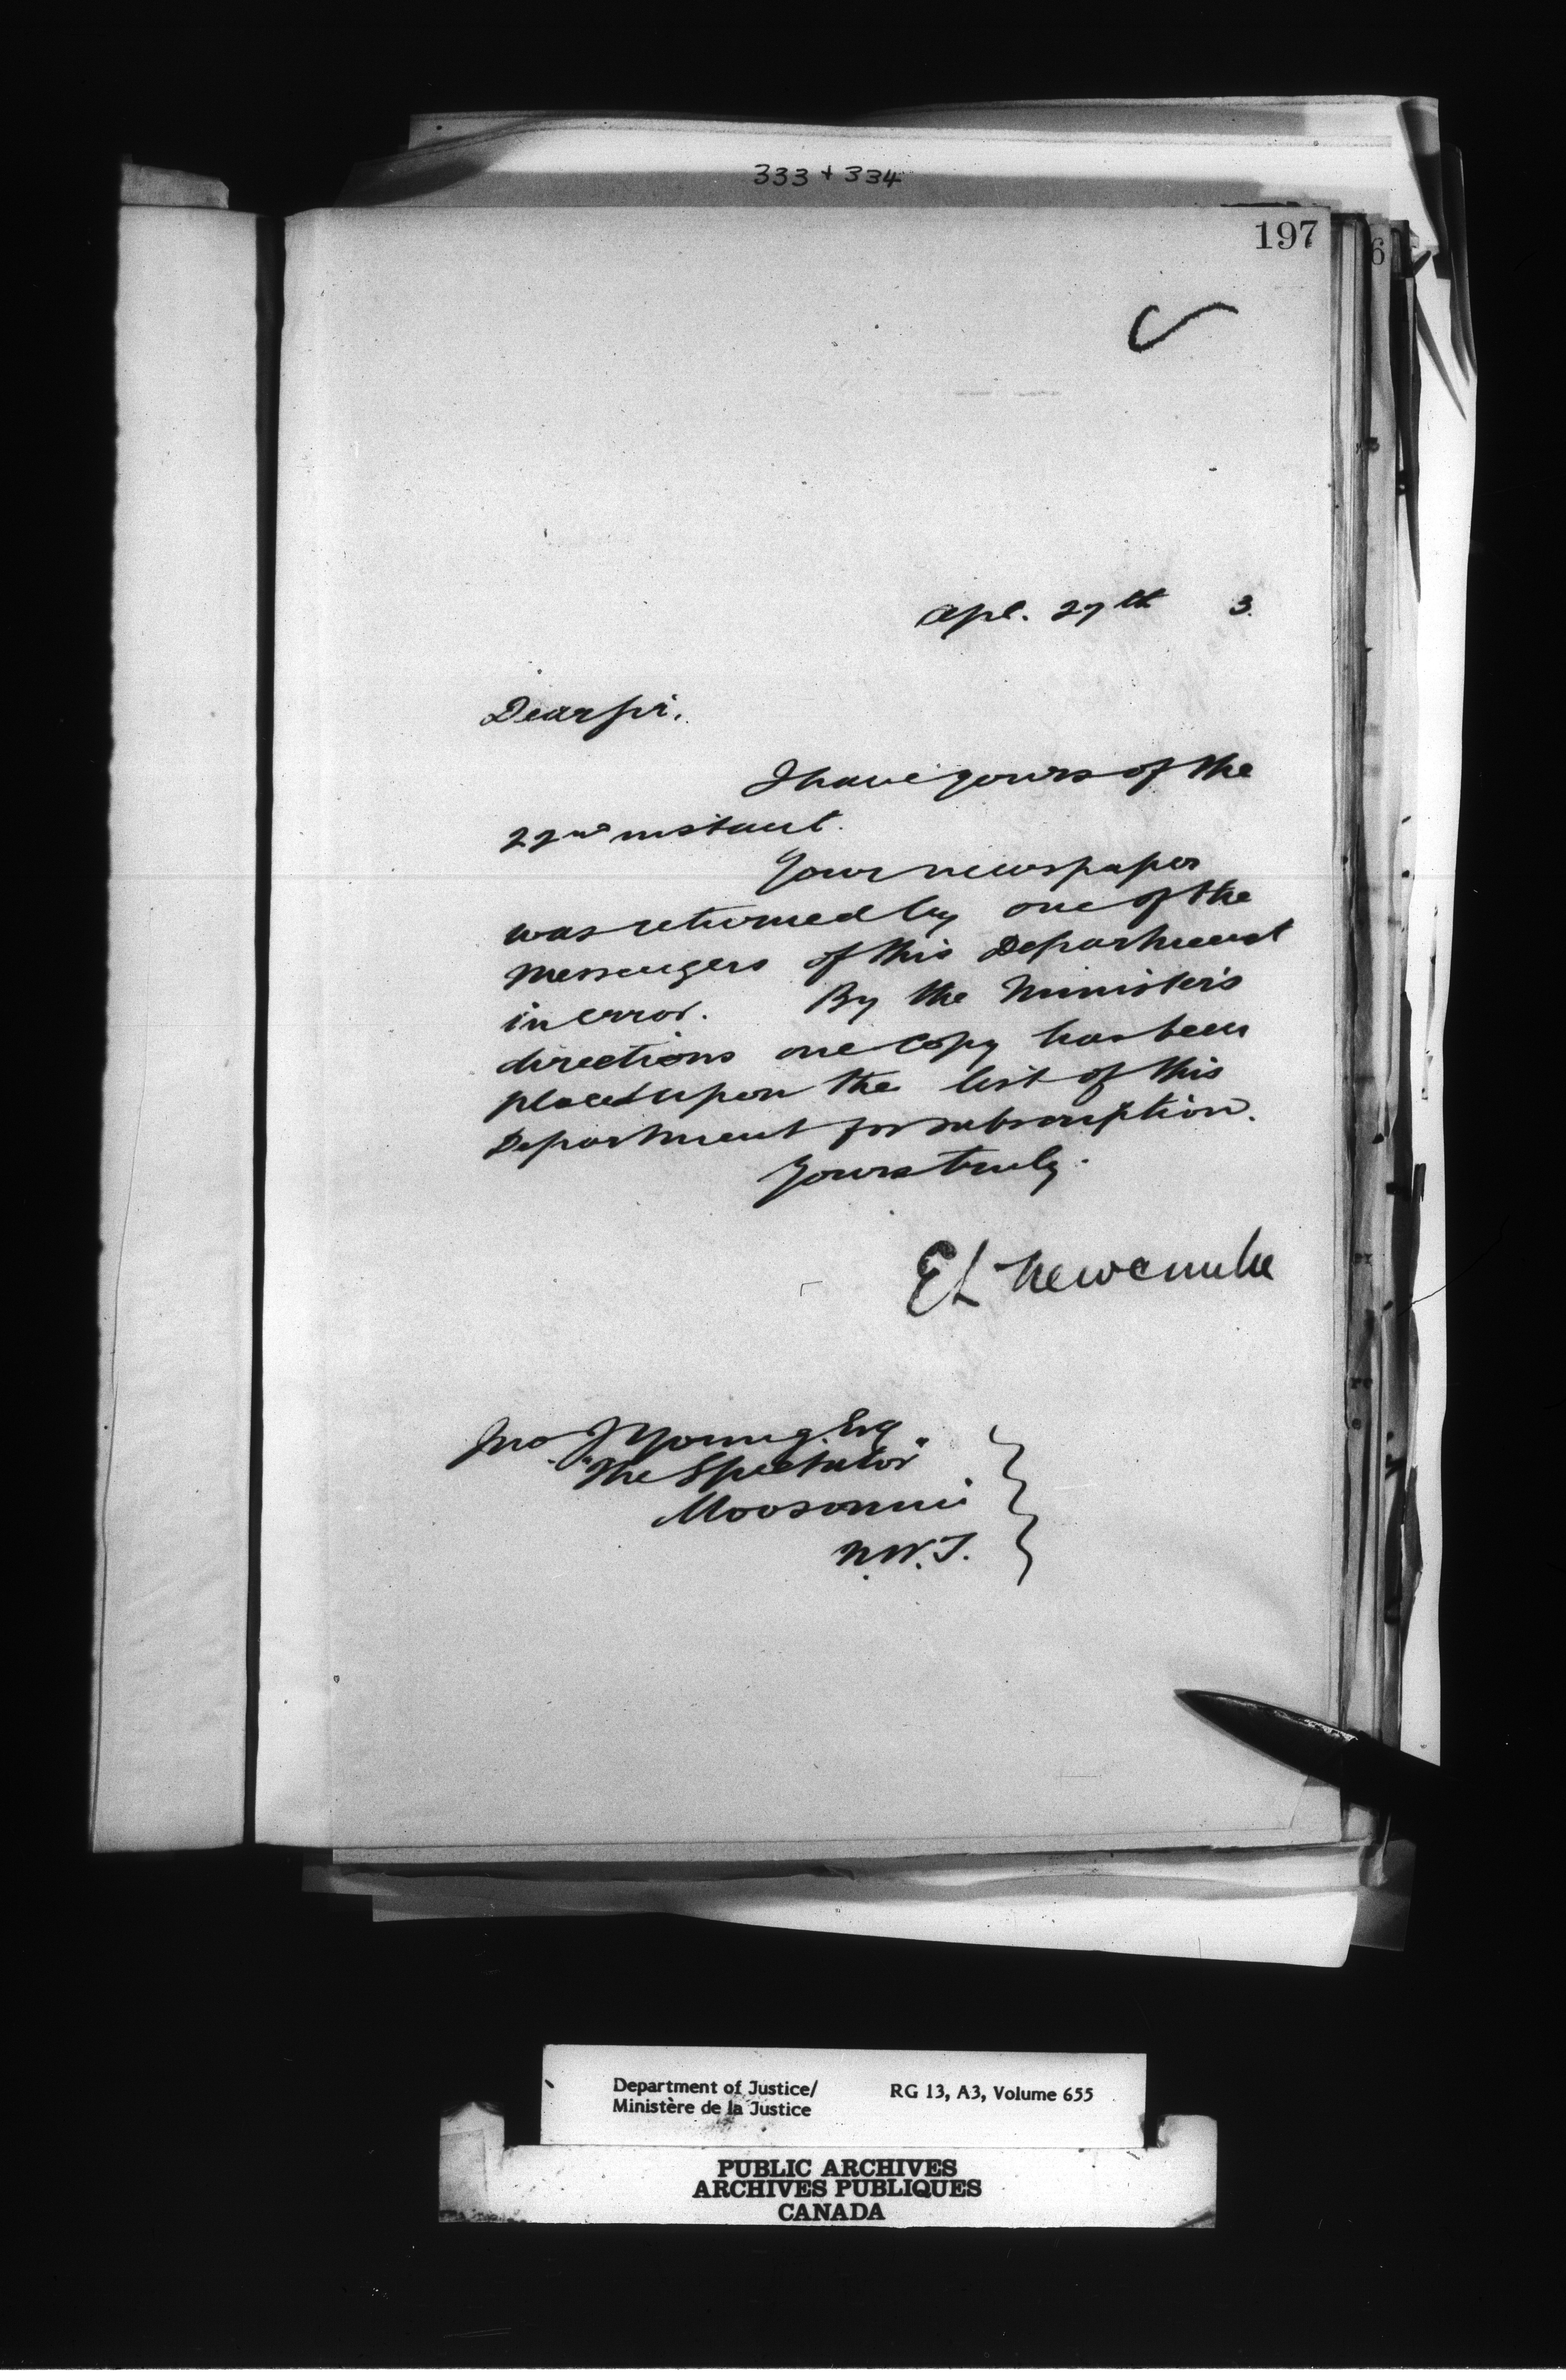 333 + 334
197
6
Apl. 27th 3.
Dear Sir,
I have yours of the
22nd instant.
Your newspaper
was returned by one of the
messengers of this Department
in error. By the Minister's
directions one copy has been
placed upon the list of this
Department for subscription.
Yours truly.
E L Newcombe
Jno J Young, Esq
"The Spectator"
Moosomin
N.W.T.
Department of Justice/ RG 13, A3, Volume 655
Ministère de la Justice
PUBLIC ARCHIVES
ARCHIVES PUBLIQUES
CANADA